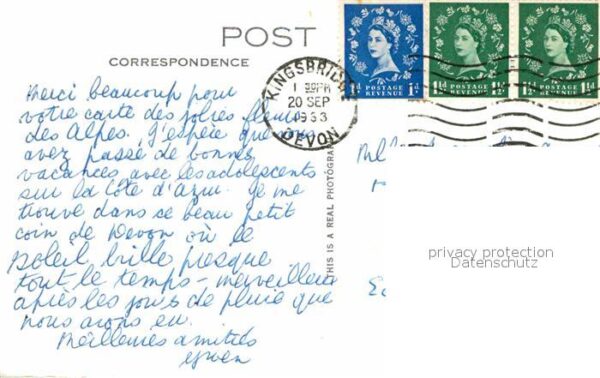 POST
CORRESPONDENCE
Merci beaucoup pour
votre carte des jolies fleurs
des Alpes. J'espère que vous
avez passé de bonnes
vacances avec les adolescents
sur la Côte d'Azur. Je me
trouve dans ce beau petit
coin de Devon où le
soleil brille presque
tout le temps - merveilleux
après les jours de pluie que
nous avons eu.
Meilleures amitiés
Gwen
THIS IS A REAL PHOTOGRAP
KINGSBRIDGE
20 SEP
DEVON
1d POSTAGE REVENUE 1d
1½d POSTAGE REVENUE 1½d
1½d POSTAGE REVENUE 1½d
privacy protection
Datenschutz